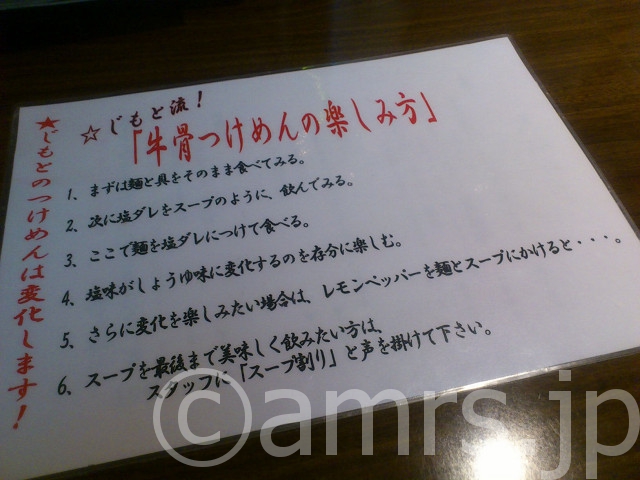 ★じもとのつけめんは変化します！
☆じもと流！
「牛骨つけめんの楽しみ方」
1、まずは麺と具をそのまま食べてみる。
2、次に塩ダレをスープのように、飲んでみる。
3、ここで麺を塩ダレにつけて食べる。
4、塩味がしょうゆ味に変化するのを存分に楽しむ。
5、さらに変化を楽しみたい場合は、レモンペッパーを麺とスープにかけると・・・。
6、スープを最後まで美味しく飲みたい方は、
スタッフに「スープ割り」と声を掛けて下さい。
©amrs.jp